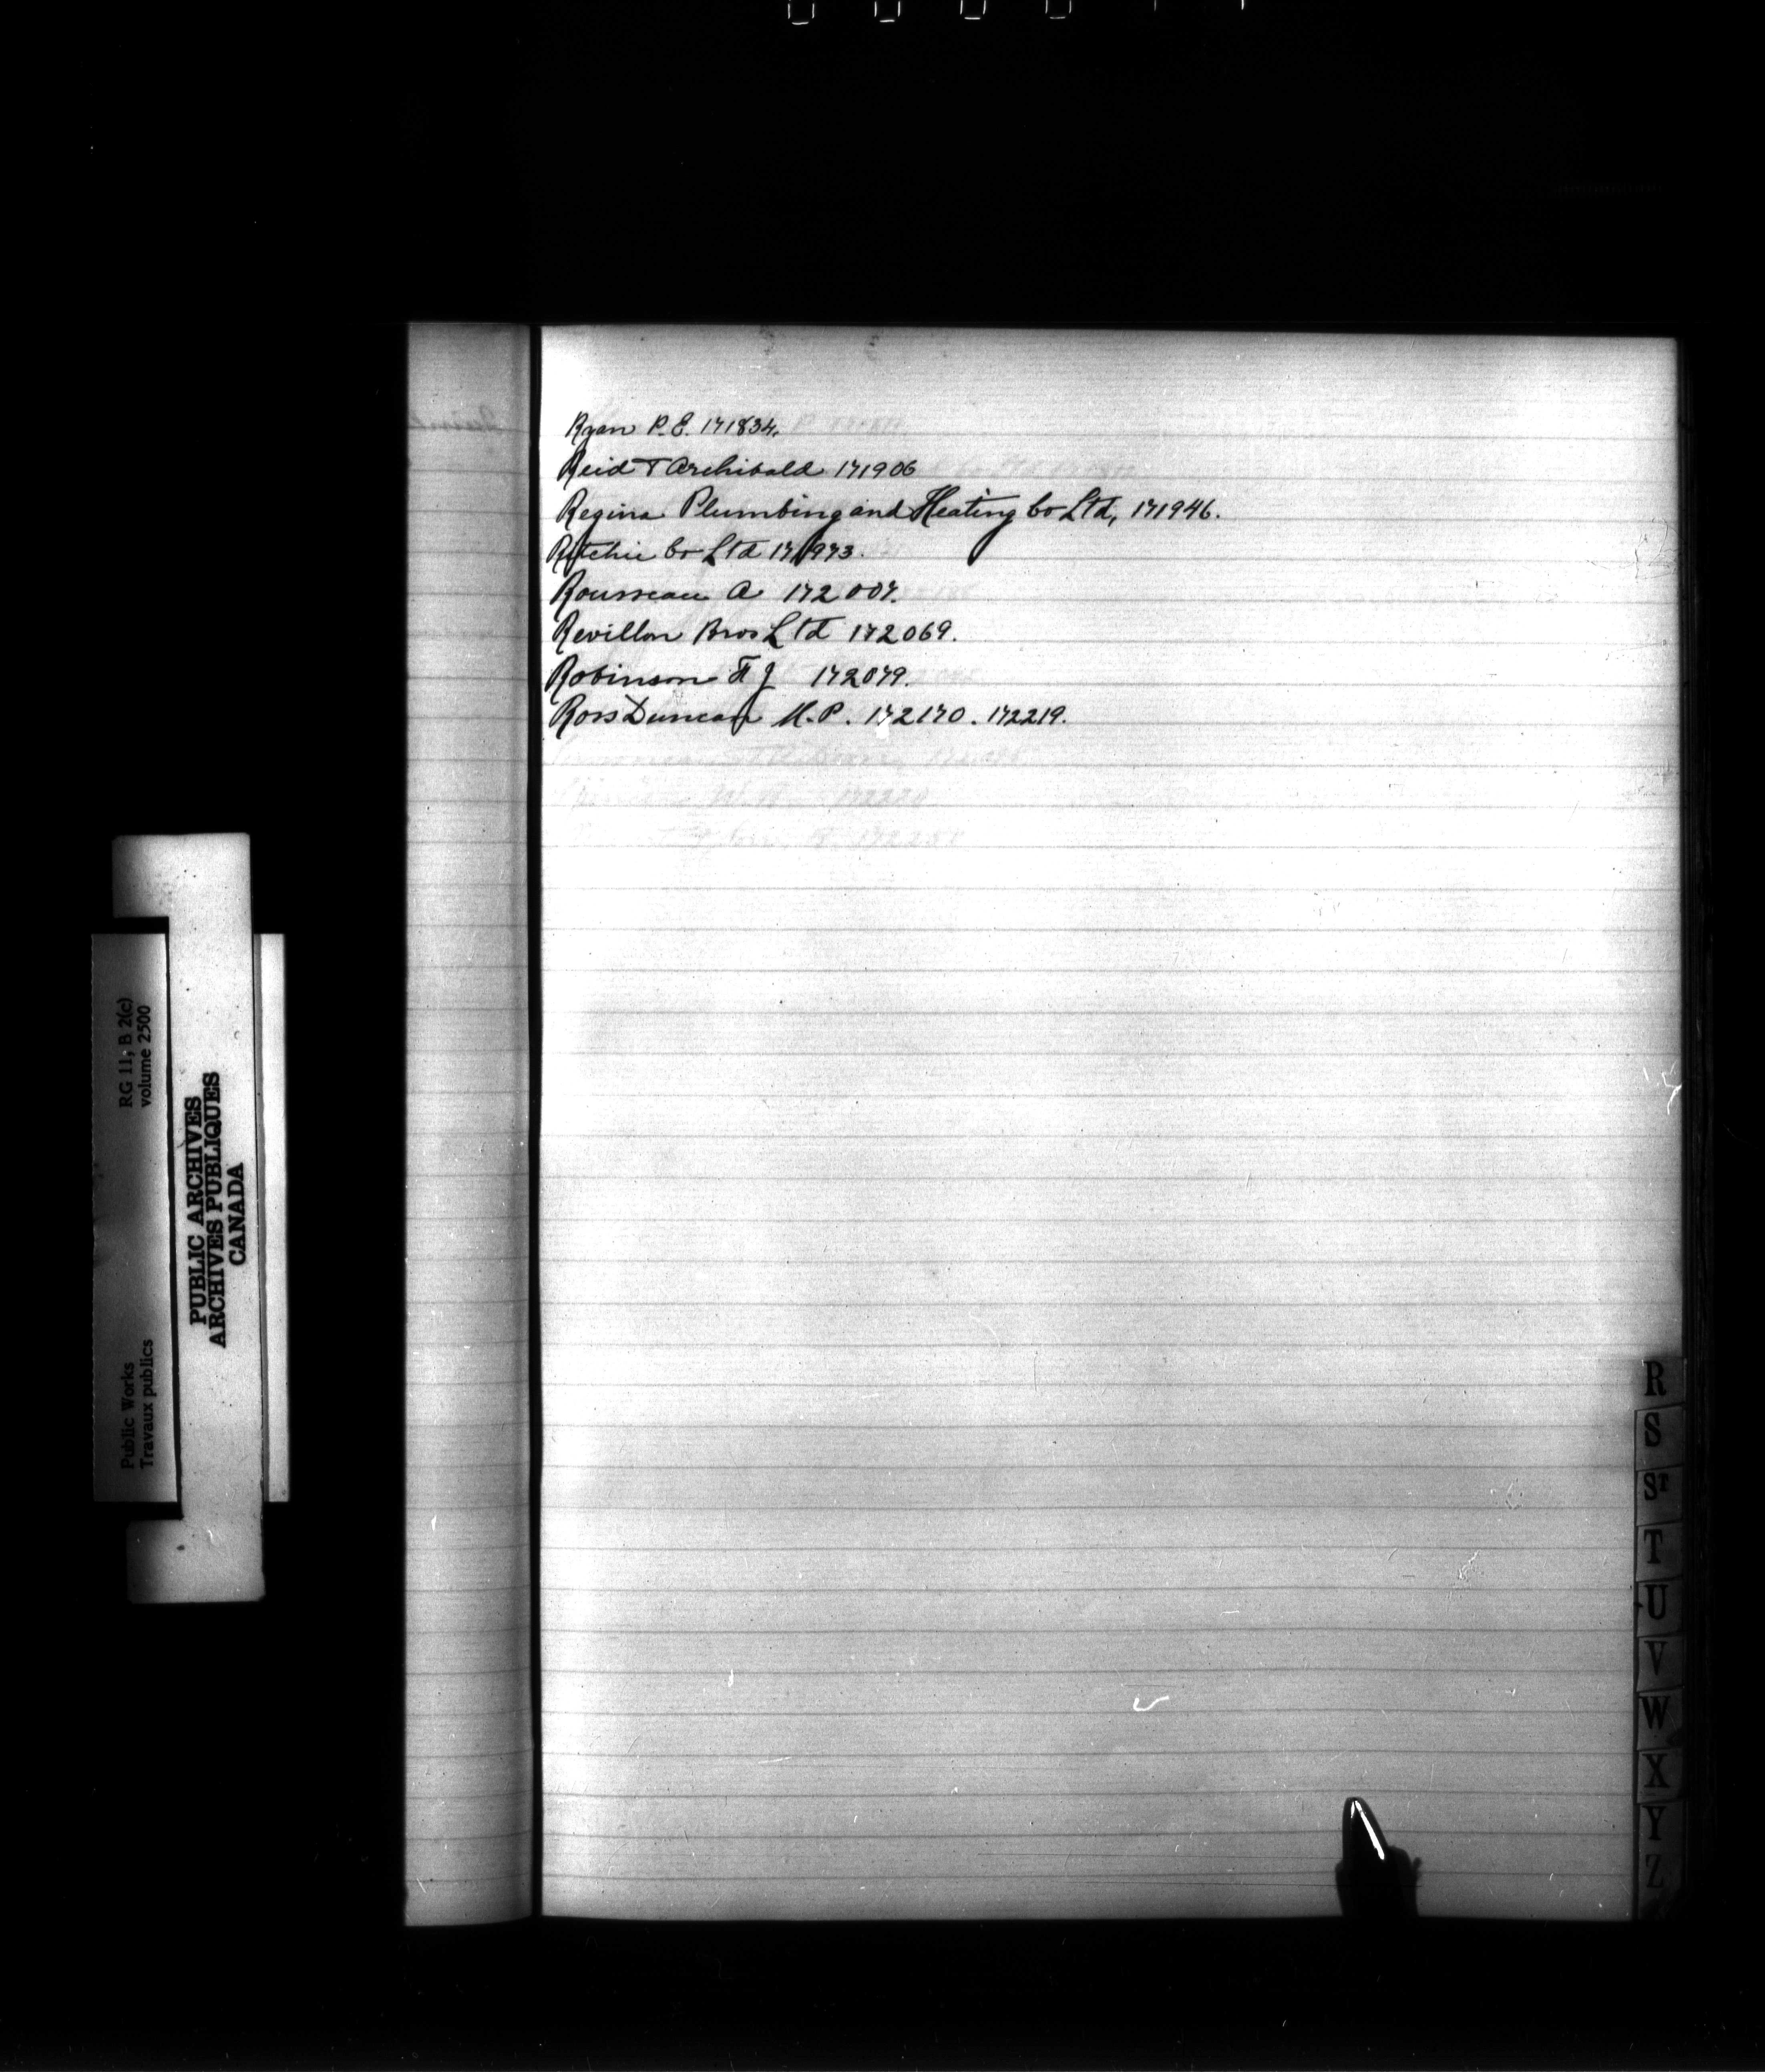 Ryan P. E. 171834.
Reid & Archibald 171906
Regina Plumbing and Heating Co Ltd, 171946.
Ritchie Co Ltd 171973.
Rousseau A 172007.
Revillon Bros Ltd 172069.
Robinson F J 172079.
Ross Duncan M.P. 172170. 172219.
RG 11, B 2(c)
volume 2500
Public Works
Travaux publics
PUBLIC ARCHIVES
ARCHIVES PUBLIQUES
CANADA
R
S
ST
T
U
V
W
X
Y
Z